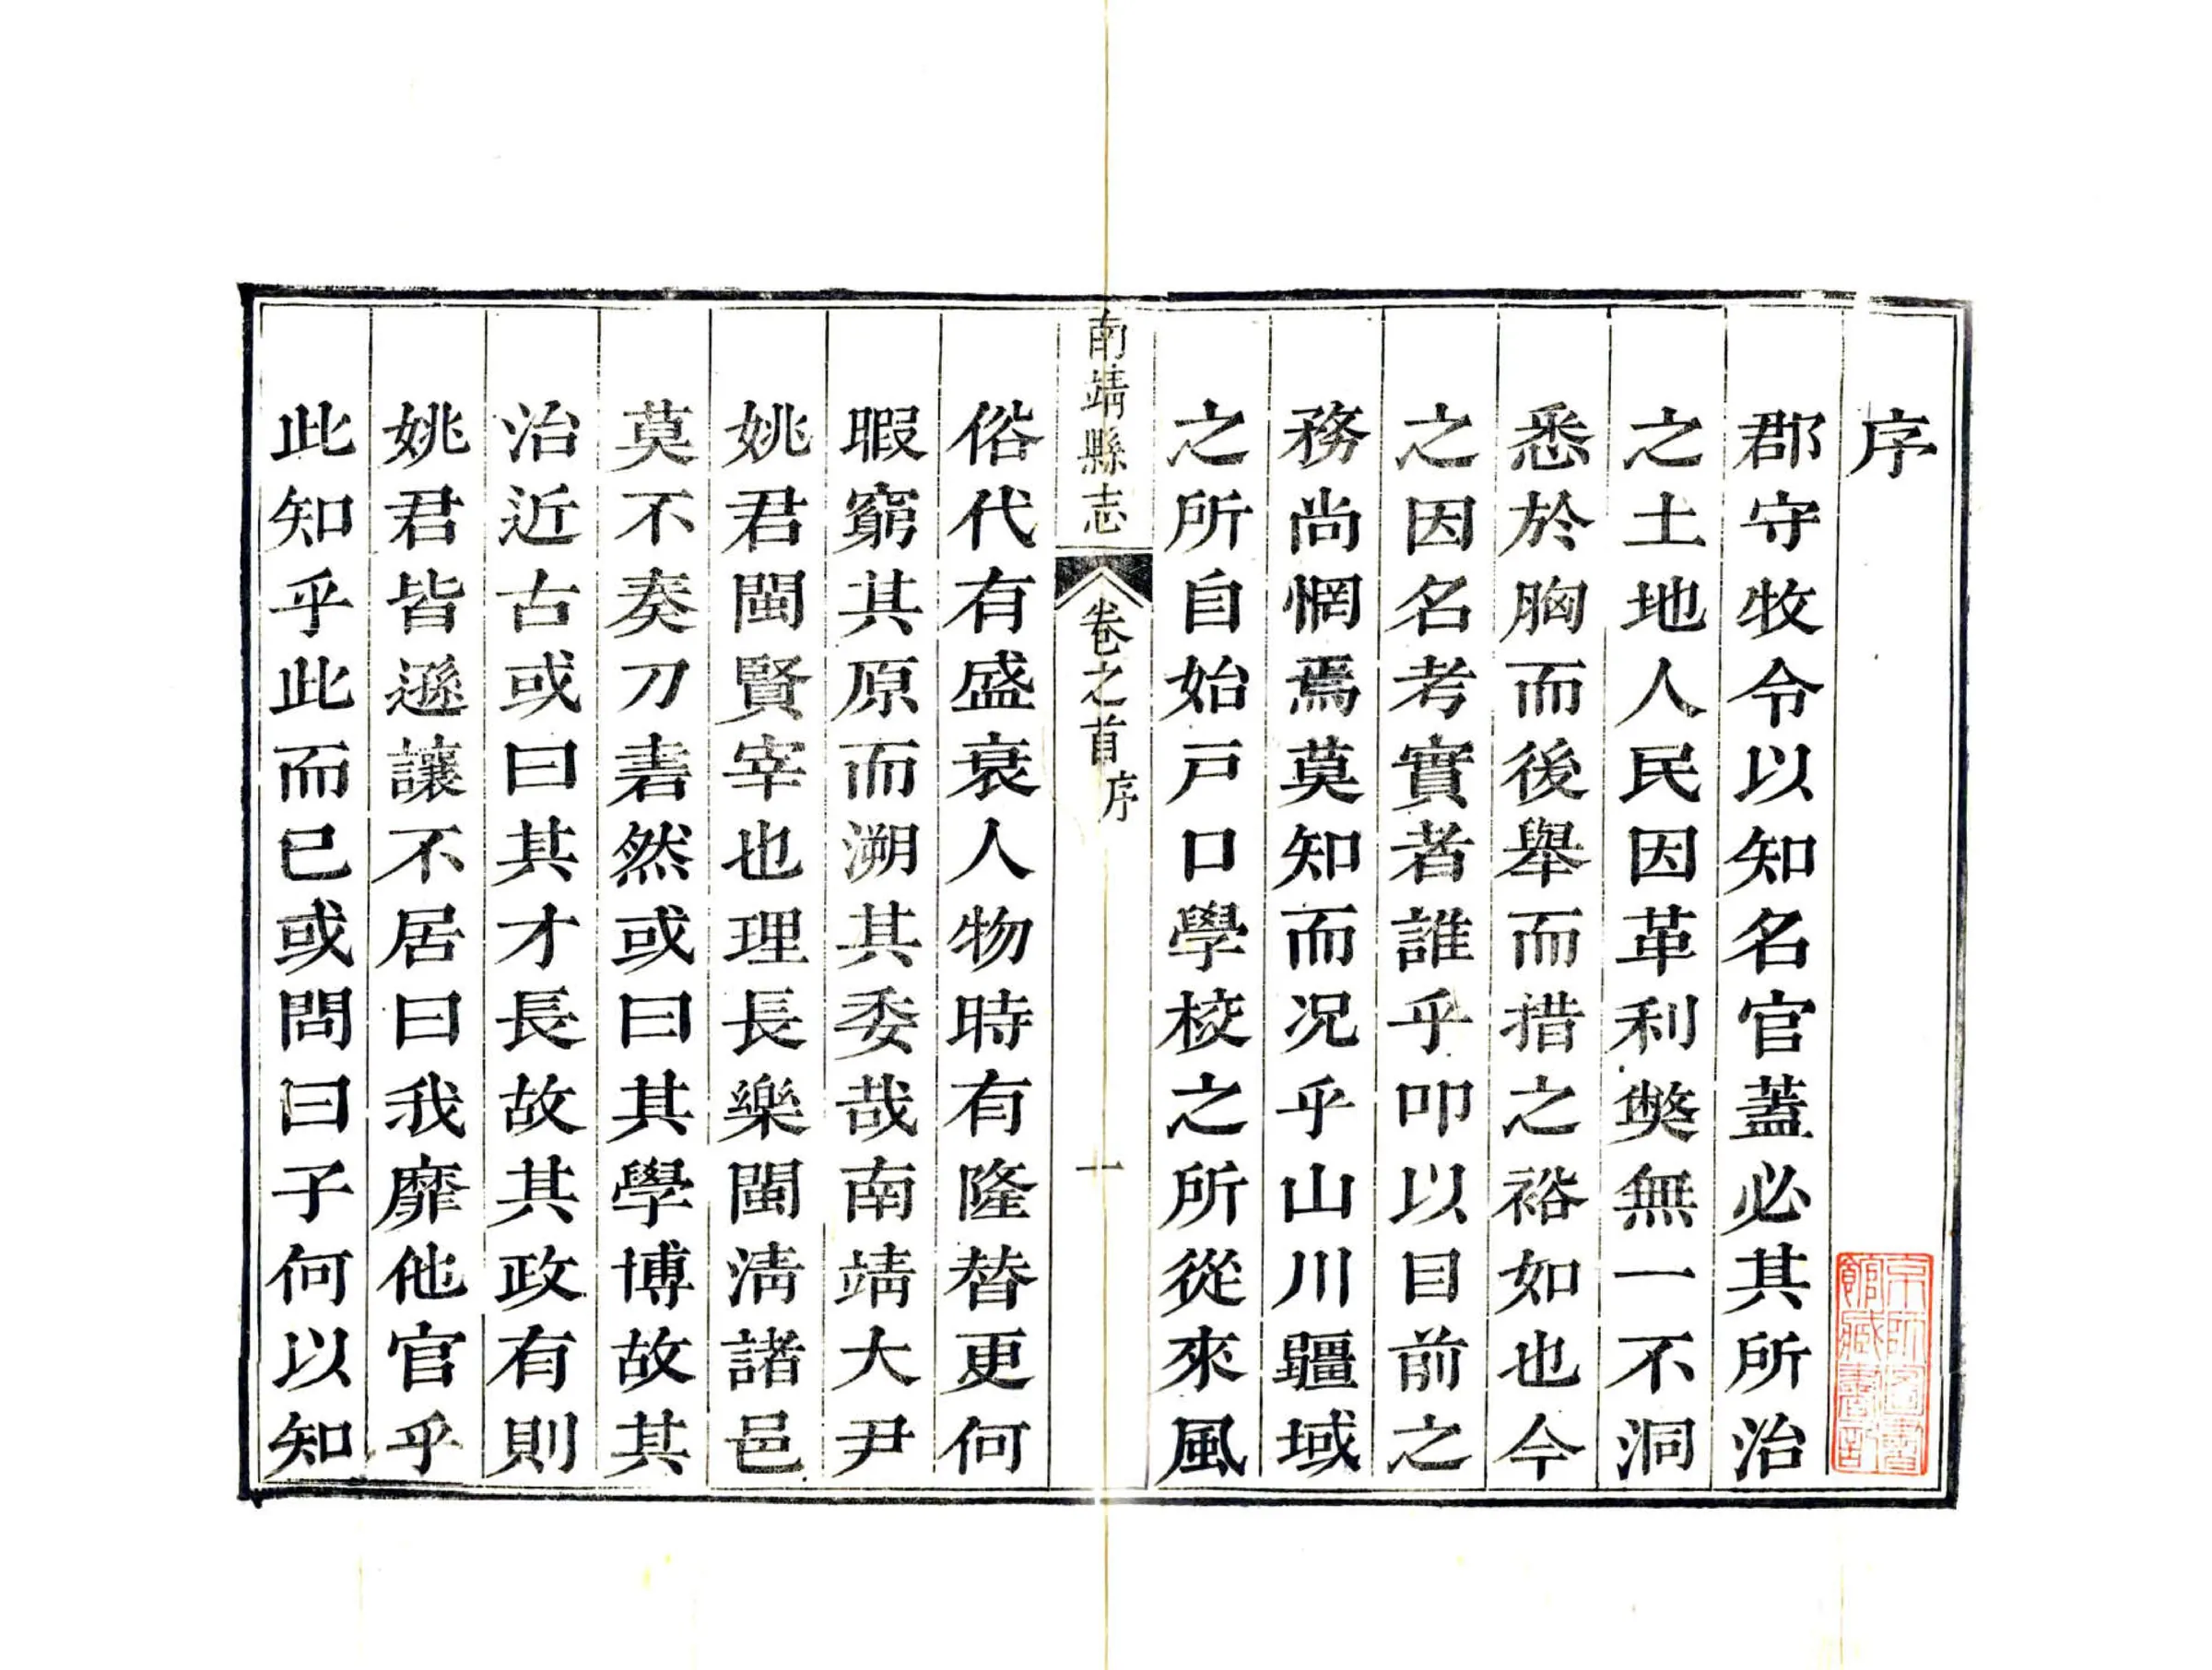 序
郡守牧令以知名官蓋必其所治
之土地人民因革利獘無一不洞
悉於胸而後舉而措之裕如也今
之因名考實者誰乎叩以目前之
務尚惘焉莫知而况乎山川疆域
之所自始戸口學校之所從來風
南靖縣志
卷之首
序
一
俗代有盛衰人物時有隆替更何
暇窮其原而溯其委哉南靖大尹
姚君閩賢宰也理長樂閩淸諸邑
莫不奏刀砉然或曰其學博故其
治近古或曰其才長故其政有則
姚君皆遜讓不居曰我靡他官乎
此知乎此而已或問曰子何以知
京師圖書
館藏書記